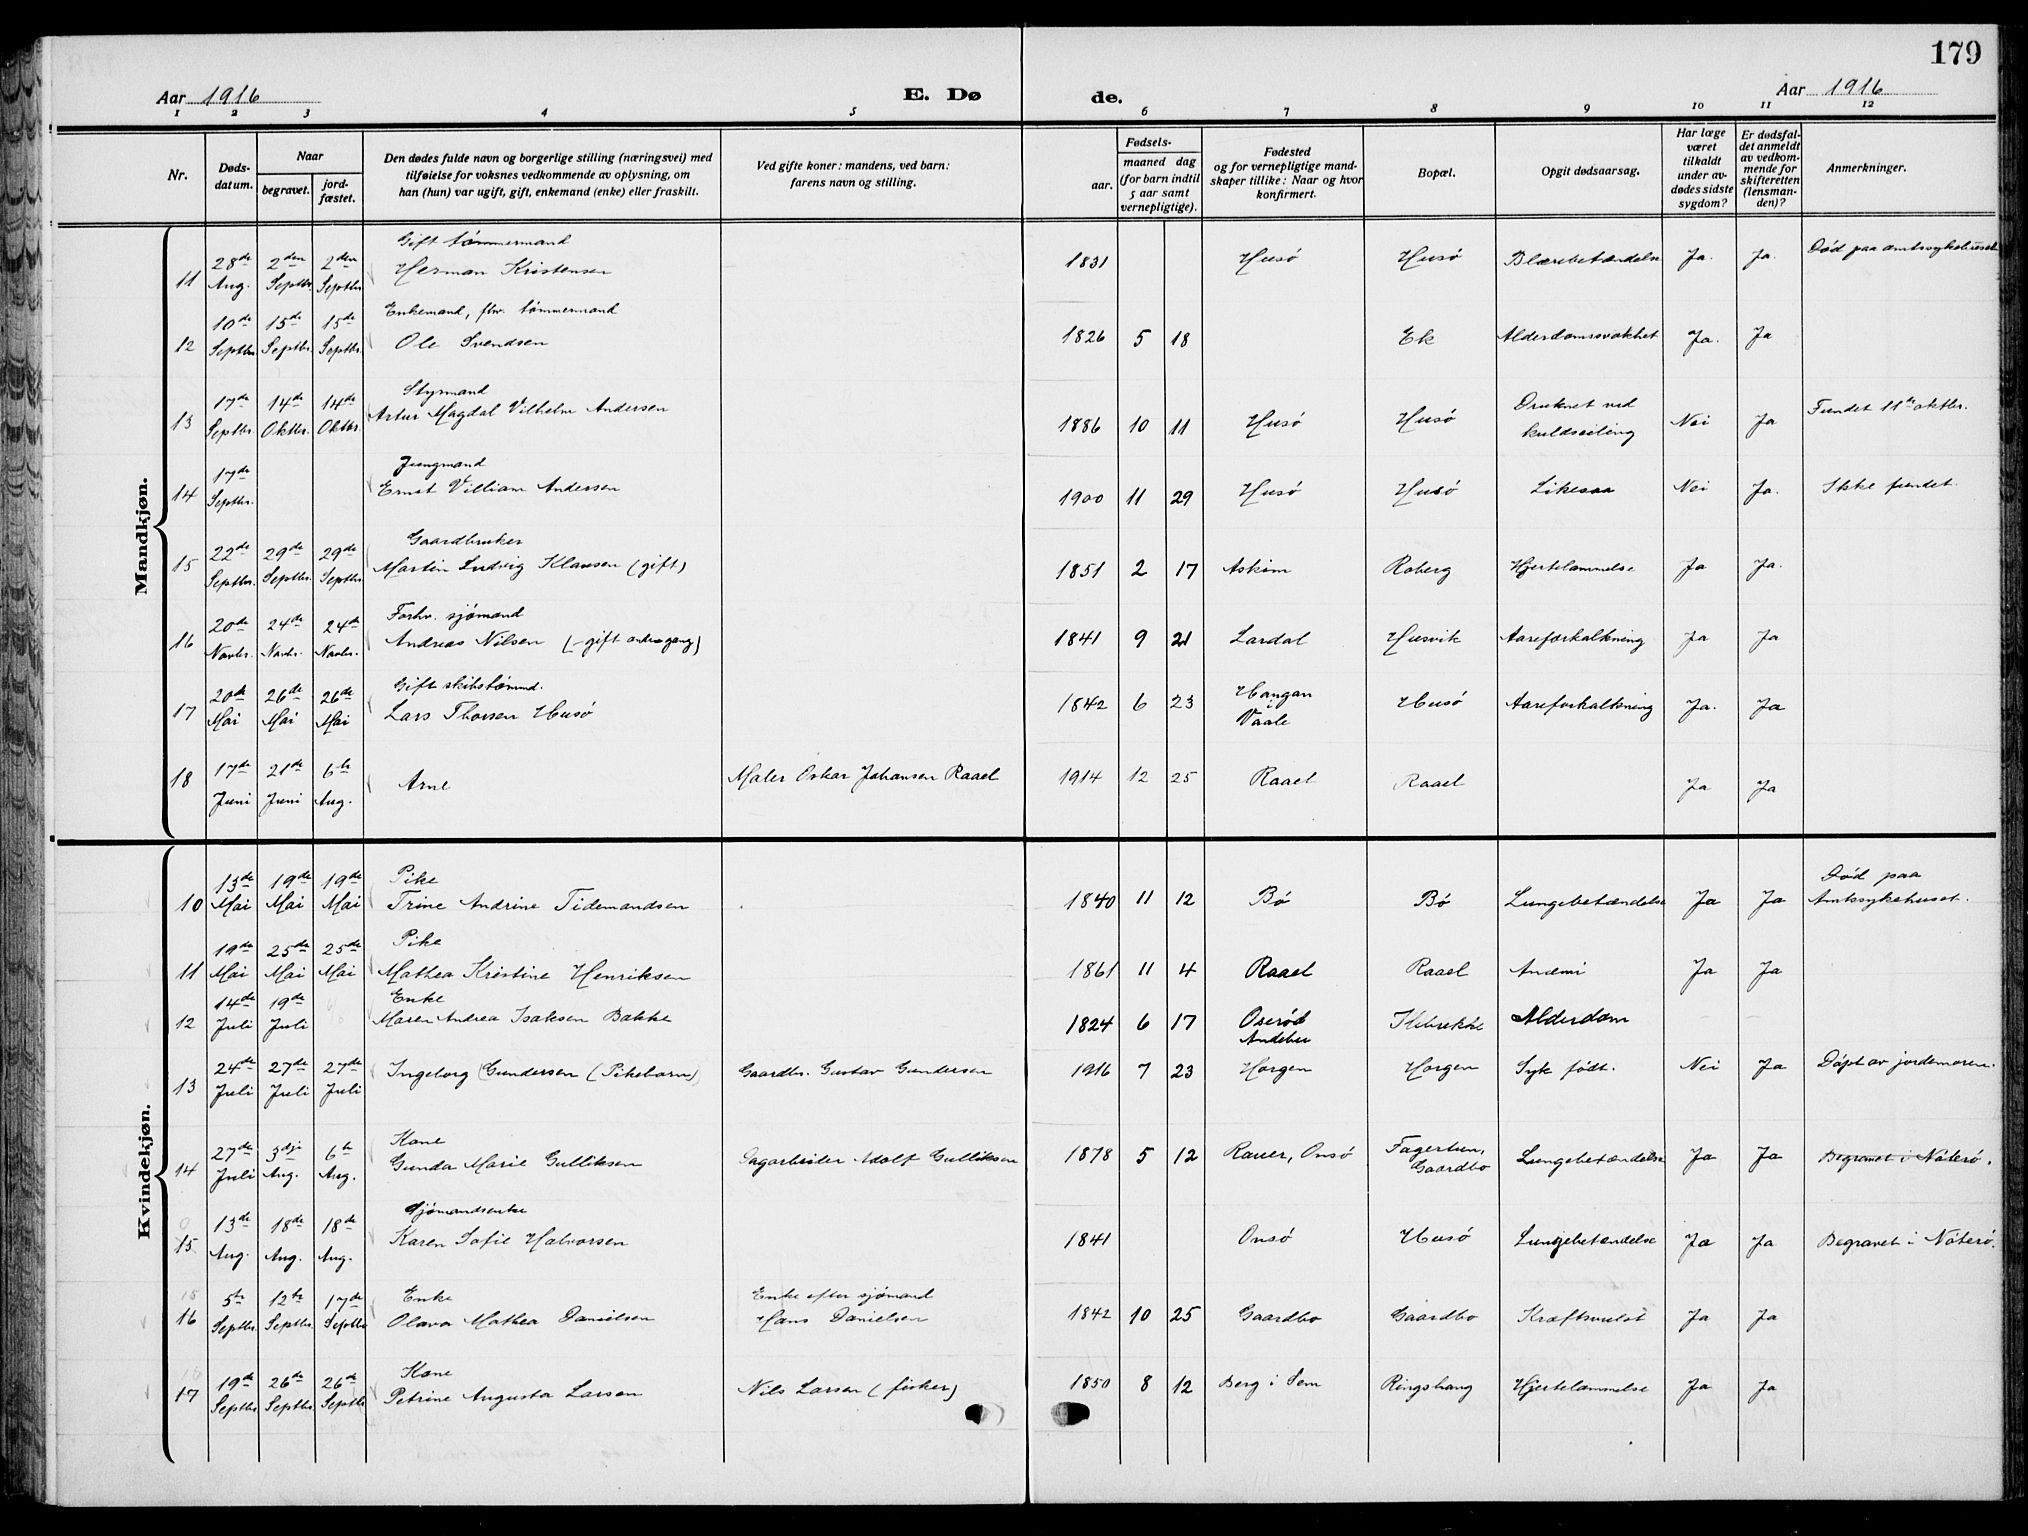 179
Aar 1916 E. Dø de. Aar 1916
1 2 3 4 5 6 7 8 9 10 11 12
Nr.
Døds-
datum.
Naar
begravet.
jord-
fæstet.
Den dødes fulde navn og borgerlige stilling (næringsvei) med
tilføielse for voksnes vedkommende av oplysning, om
han (hun) var ugift, gift, enkemand (enke) eller fraskilt.
Ved gifte koner: mandens, ved barn:
farens navn og stilling.
Fødsels-
aar.
maaned dag
(for barn indtil
5 aar samt
vernepligtige).
Fødested
og for vernepligtige mand-
skaper tillike: Naar og hvor
konfirmert.
Bopæl.
Opgit dødsaarsag.
Har læge
været
tilkaldt
under av-
dødes sidste
sygdom?
Er dødsfal-
det anmeldt
av vedkom-
mende for
skifteretten
(lensman-
den)?
Anmerkninger.
Mandkjøn.
28de 2den 2den Gift tømmermand
11 Aug. Septbr. Septbr. Herman Kristensen 1831 Husö Husö Blærebetændelse Ja. Ja. Död paa amtssykehuset
10de 15de 15de Enkemand, fhv. tømmermand
12 Septbr. Septbr. Septbr. Ole Svendsen 1826 5 18 Ek Alderdomssvakhet Ja. Ja
17de 14de 14de Styrmand
13 Septbr. Oktbr. Oktbr. Artur Magdal Vilhelm Andersen 1886 10 11 Husö Husö Druknet ved
kuldseiling Nei Ja Fundet 11te oktbr.
17de Jungmand
14 Septbr. Ernst Villiam Andersen 1900 11 29 Husö Husö Likesaa Nei Ja. Ikke fundet.
22de 29de 29de Gaardbruker
15 Septbr. Septbr. Septbr. Martin Ludvig Klausen (gift) 1851 2 17 Askim Roberg Hjertelammelse Ja Ja.
20de 24de 24de Forhv. sjömand
16 Novbr. Novbr. Novbr. Andreas Nilsen (- gift andre gang) 1841 9 21 Lardal Husvik Aareforkalkning Ja Ja
20de 26de 26de Gift skibstømmd.
17 Mai Mai Mai Lars Thorsen Husö 1842 6 23 Hangan
Vaale Husö Aareforkalkning Ja. Ja
17de 21de 6te
18 Juni Juni Aug. Arne Maler Oskar Johansen Raael 1914 12 25 Raael Raael Ja Ja
Kvindekjøn.
13de 19de 19de Pike
10 Mai Mai Mai Trine Andrine Tidemandsen 1840 11 12 Bö Bö Lungebetændelse Ja Ja Död paa
Amtssykehuset.
19de 25de 25de Pike
11 Mai Mai Mai Mathea Kristine Henriksen 1861 11 4 Raael Raael Anæmi Ja Ja
14de 19de Enke
12 Juli Juli Maren Andrea Isaksen Bakke 1824 6 17 Oseröd
Andebu Alderdom
24de 27de 27de
13 Juli Juli Juli Ingeborg Gundersen (Pikebarn) Gaardbr. Gustav Gundersen 1916 7 23 Horgen Horgen Syk födt. Nei Ja Döpt av jordemoren.
27de 3dje 6te Kone
14 Juli Aug. Aug. Gunda Marie Gulliksen Sagarbeider Adolf Gulliksen 1878 5 12 Rauer, Onsö Fagertun,
Gaardbo Lungebetændelse Ja Ja Begravet i Nöterö.
13de 18de 18de Sjömandsenke
15 Aug. Aug. Aug. Karen Sofie Halvorsen 1841 Onsö Husö Lungebetændelse Ja Ja Begravet i Nöterö.
5te 12te 17de Enke Enke efter sjömand
16 Septbr. Septbr. Septbr Olava Mathea Danielsen Hans Danielsen 1842 10 25 Gaardbo Gaardbo Kræftsvulst Ja Ja
19de 26de 26de Kone
17 Septbr. Septbr. Septbr Petrine Augusta Larsen Nils Larsen (fisker) 1850 8 12 Berg i Sem Ringshaug Hjertelammelse Ja Ja